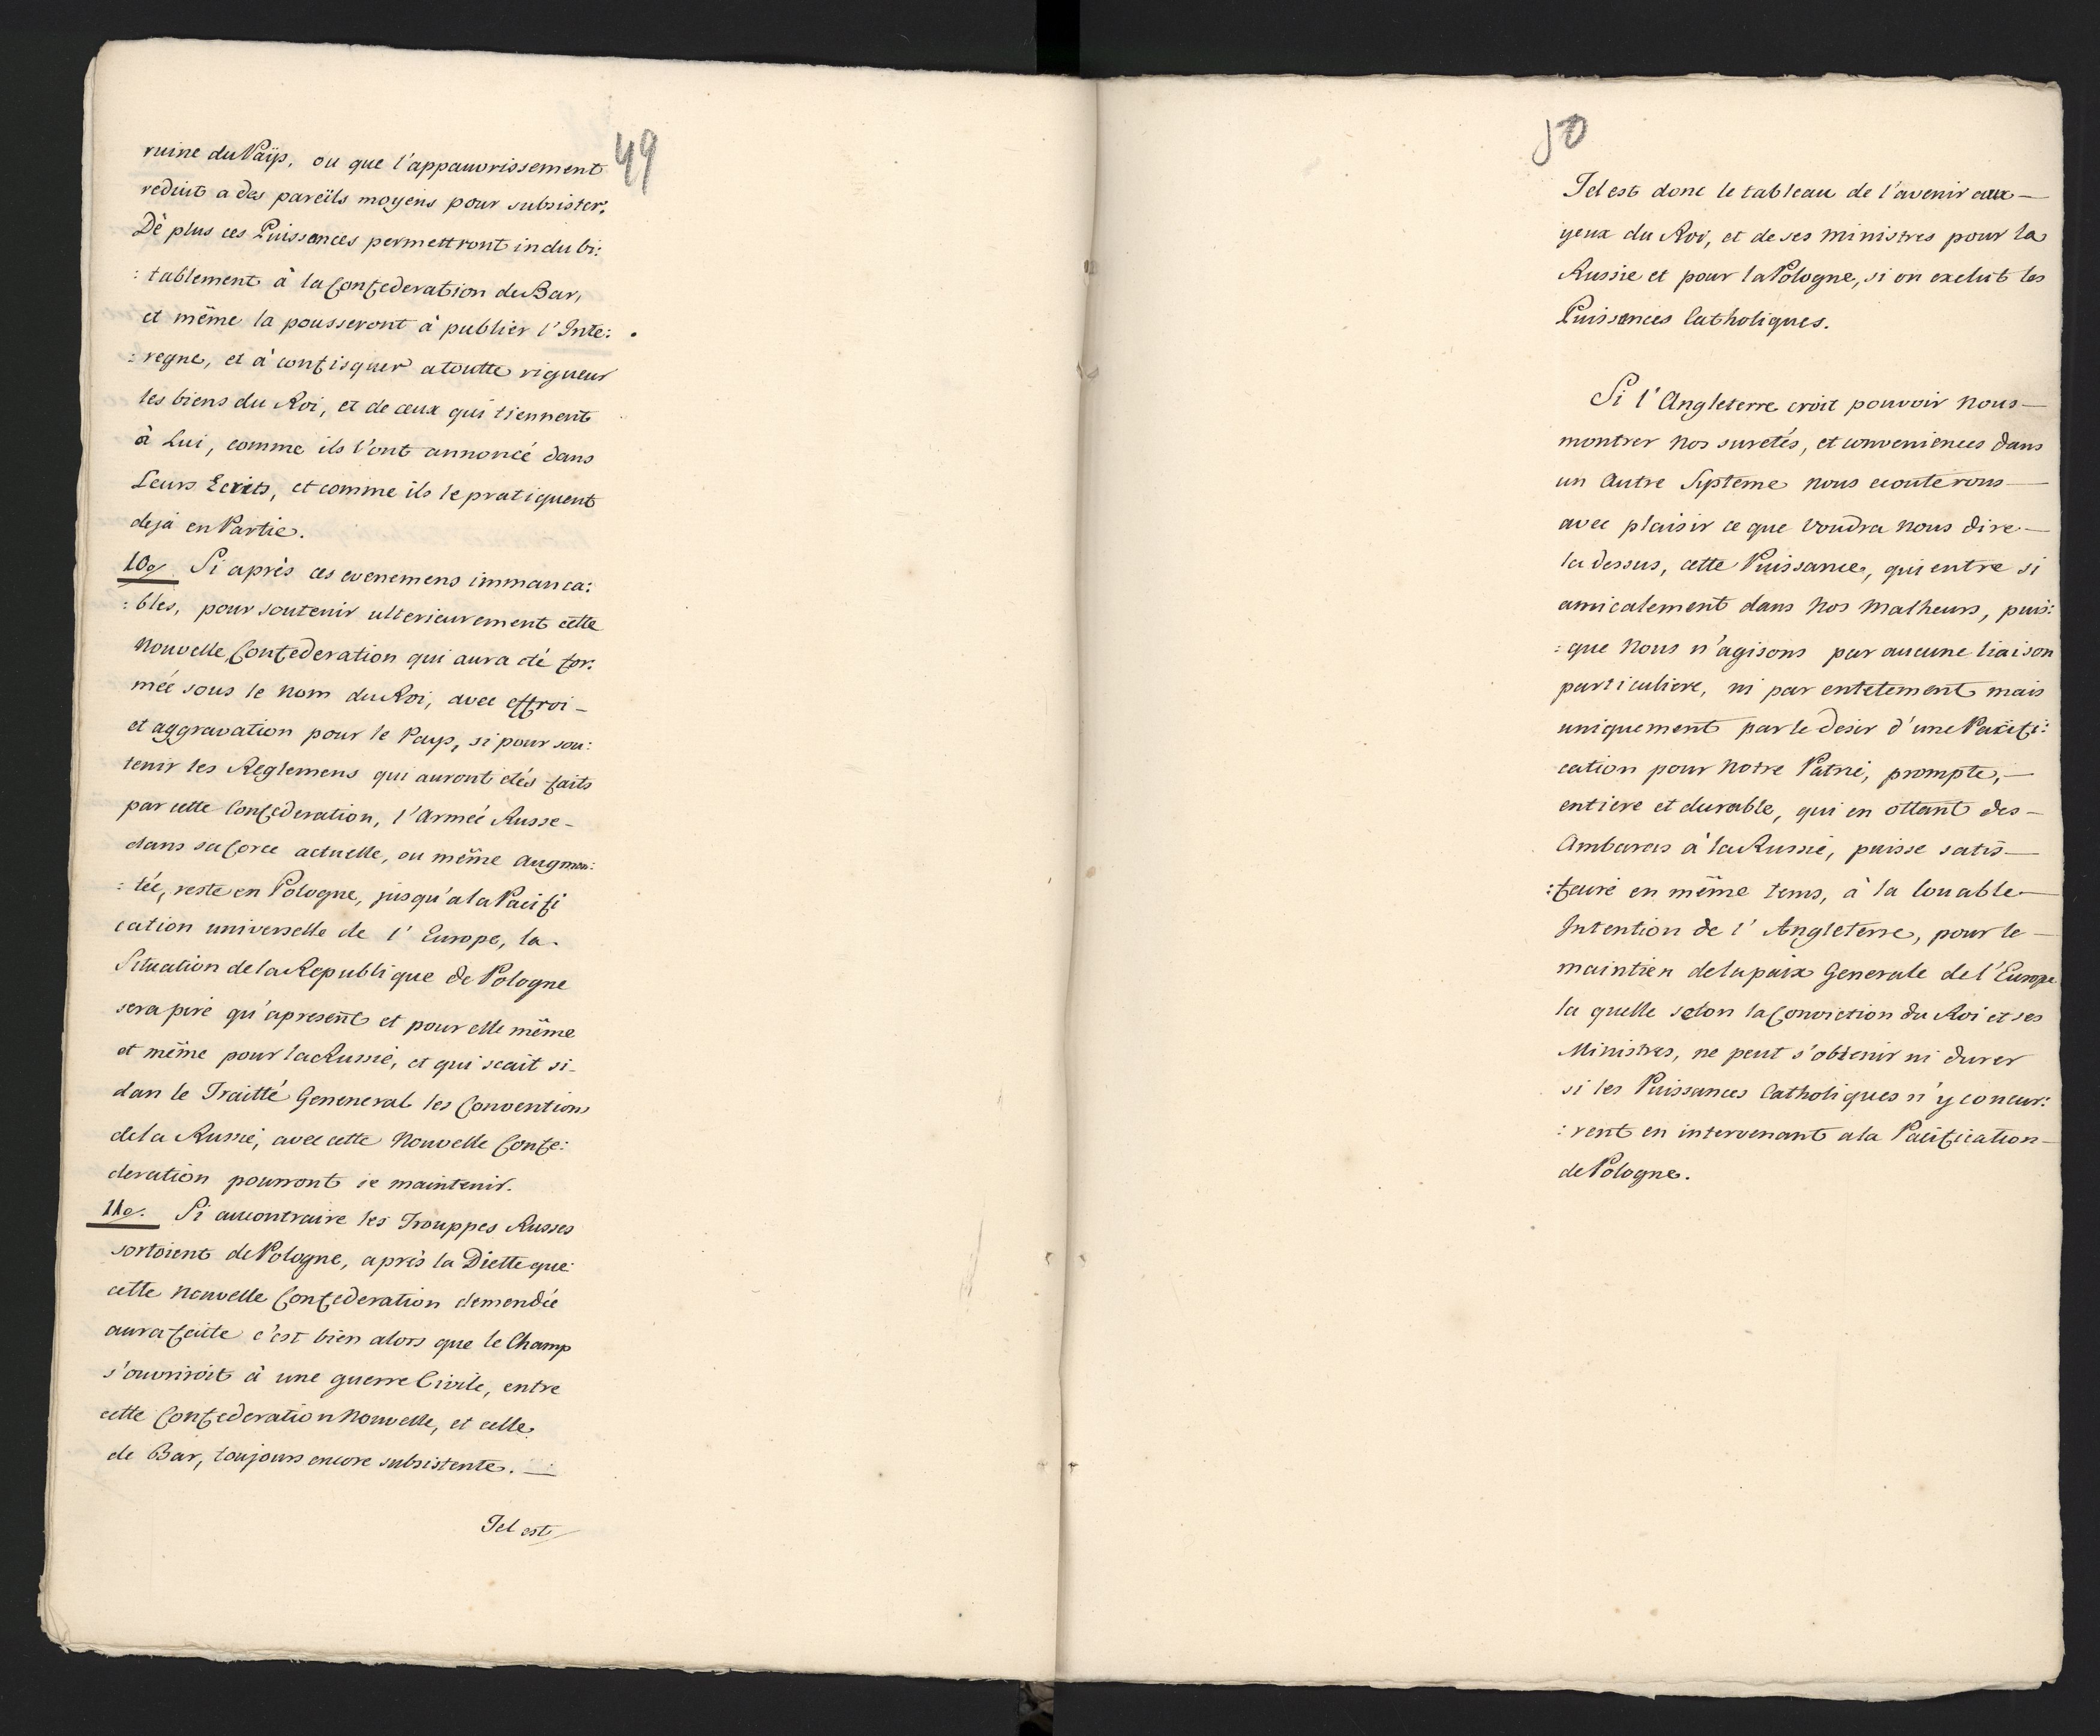 49
ruine du Païs, ou que l'appauvrissement
reduit a des pareïls moyens pour subsister.
Dè plus ces Puissances permettront indubi:
: tablement à la Confederation de Bar,
et même la pousseront à publier l'Inte:
: regne, et à confisquer a toutte rigueur
les biens du Roi, et de ceux qui tiennent
à Lui, comme ils l'ont annoncé dans
Leurs Ecrits, et comme ils le pratiquent
deja en Partie.
10o/ Si après ces evenemens immanca:
: bles, pour soutenir ulterieurement cette
Nouvelle Confederation qui aura été for:
mée sous le Nom du Roi, avec effroi –
et aggravation pour le Pays, si pour sou:
tenir les Reglemens qui auront étés faits
par cette Confederation, l'Armeé Russe –
dans sa force actuelle, ou même augmen:
: tée, reste en Pologne, jusqu'a la Pacifi
cation universelle de l'Europe, la –
Situation de la Republique de Pologne
sera pire qu'apresent et pour elle même
et même pour la Russie, et qui scait si –
dan le Traitté Geneneral les Conventions
de la Russie, avec cette Nouvelle Confe:
deration pourront se maintenir.
11o/. Si aucontraire les Trouppes Russes
sortoient de Pologne, après la Diette que
cette Nouvelle Confederation demendée
aura faite c'est bien alors que le Champ
s'ouvriroit à une guerre Civile, entre
cette Confederation Nouvelle, et celle
de Bar, toujours encore subsistente. —
Tel est
50
Tel est donc le tableau de l'avenir aux —
yeux du Roi, et de ses Ministres pour la
Russie et pour la Pologne, si on exclut les
Puissances Catholiques.
Si l'Angleterre croit pouvoir Nous —
montrer Nos suretés, et conveniences dans
un Autre Systeme Nous ecouterons —
avec plaisir ce que voudra Nous dire —
la dessus, cette Puissance, qui entre si
amicalement dans Nos Malheurs, puis:
: que Nous n'agisons par aucune liaison
particuliere, ni par entetement mais
uniquement par le desir d'une Pacifi:
cation pour Notre Patrie, prompte, —
entiere et durable, qui en ottant des —
Ambaras à la Russie, puisse satis —
: faire en même tems, à la louable —
Intention de l'Angleterre, pour le —
maintien de la paix Generale de l'Europe
la quelle selon la Conviction du Roi et ses
Ministres, ne peut s'obtenir ni durer
si les Puissances Catholiques n'y concur:
: rent en intervenant a la Pacification —
de Pologne.